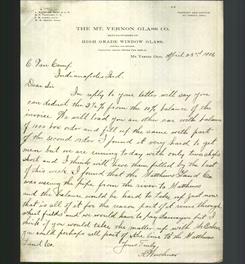 THE MT. VERNON GLASS CO.
HIGH GRADE WINDOW GLASS.
Mt. Vernon, Ohio, April 23rd
C. Van Camp
Indianapolis Ind.
Dear Sir
In reply to your letter will say you
can deduct the 2½% from the 10% balance of the
invoice. We will load you an other car with balance
of 1000 box order and fill up the same with part
of the second order. I found it very hard to get
men but we are running to day with only two shops
short and I think will have them filled by the last
of this week. I found that the Mathews Land Co.
was using the pipe from the river to Mathews
and the balance would be hard to take up just now
that is all of it for the reason part of it runs through
wheat fields and we would have to pay damages but I
think if you would take the matter up with Mr.
you could perhaps sell part of the line to the Mathews
Land Co.
Yours Truly